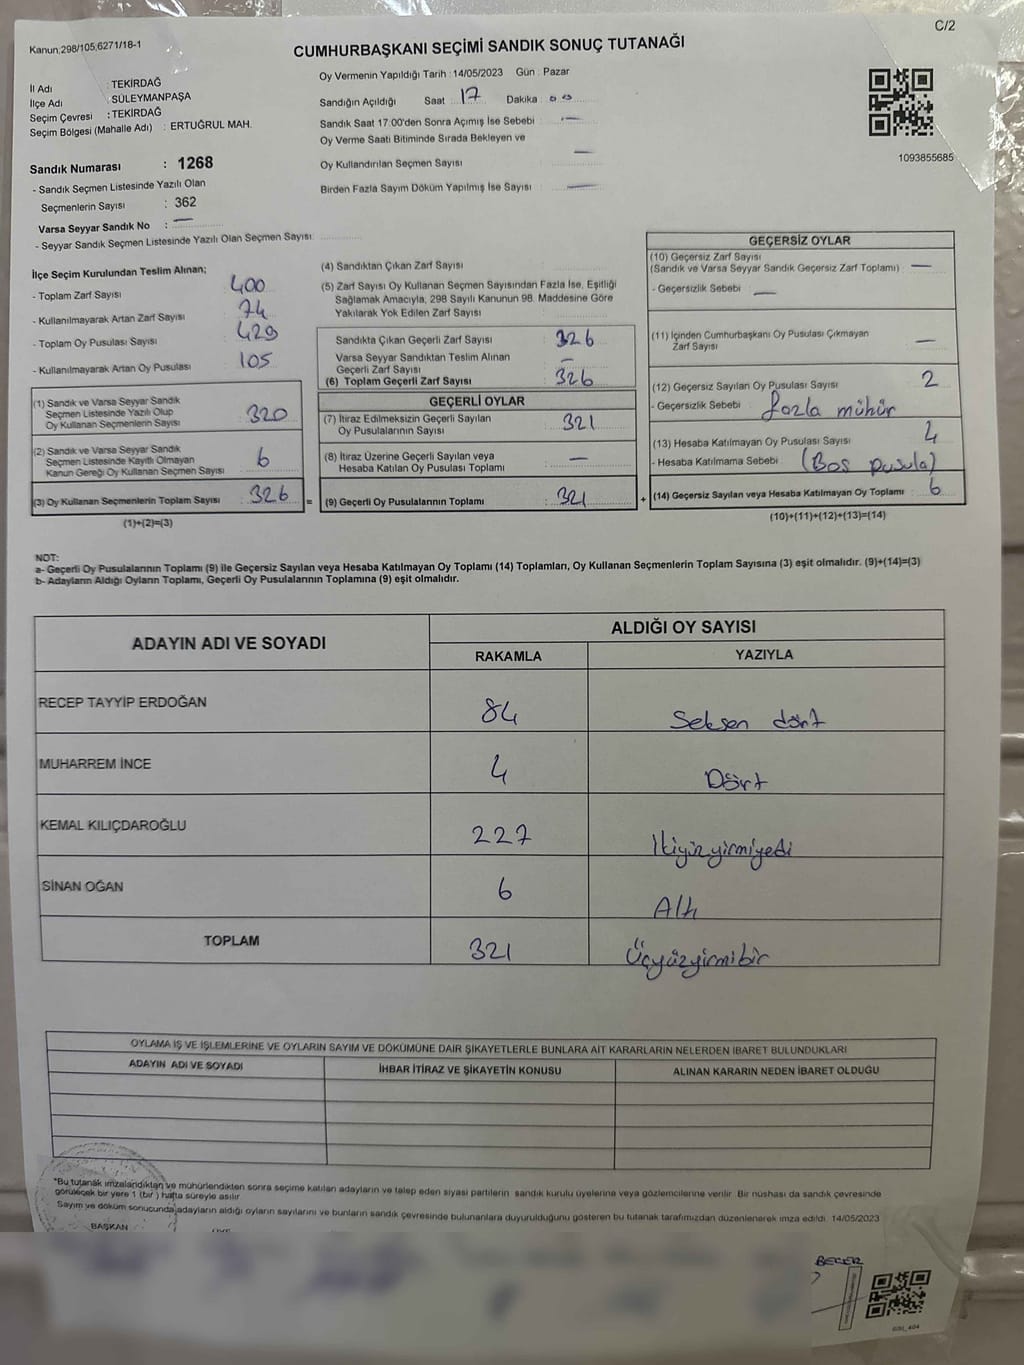 C/2
Kanun;298/105,6271/18-1
CUMHURBAŞKANI SEÇİMİ SANDIK SONUÇ TUTANAĞI
İl Adı : TEKİRDAĞ
İlçe Adı : SÜLEYMANPAŞA
Seçim Çevresi : TEKİRDAĞ
Seçim Bölgesi (Mahalle Adı) : ERTUĞRUL MAH.
Sandık Numarası : 1268
- Sandık Seçmen Listesinde Yazılı Olan
Seçmenlerin Sayısı : 362
Varsa Seyyar Sandık No : —
- Seyyar Sandık Seçmen Listesinde Yazılı Olan Seçmen Sayısı:
Oy Vermenin Yapıldığı Tarih : 14/05/2023 Gün : Pazar
Sandığın Açıldığı Saat : 17 Dakika : 00
Sandık Saat 17:00'den Sonra Açımış İse Sebebi : —
Oy Verme Saati Bitiminde Sırada Bekleyen ve
Oy Kullandırılan Seçmen Sayısı : —
Birden Fazla Sayım Döküm Yapılmış İse Sayısı : —
1093855685
İlçe Seçim Kurulundan Teslim Alınan;
- Toplam Zarf Sayısı : 400
- Kullanılmayarak Artan Zarf Sayısı : 74
- Toplam Oy Pusulası Sayısı : 429
- Kullanılmayarak Artan Oy Pusulası : 105
(1) Sandık ve Varsa Seyyar Sandık
Seçmen Listesinde Yazılı Olup
Oy Kullanan Seçmenlerin Sayısı : 320
(2) Sandık ve Varsa Seyyar Sandık
Seçmen Listesinde Kayıtlı Olmayan
Kanun Gereği Oy Kullanan Seçmen Sayısı : 6
(3) Oy Kullanan Seçmenlerin Toplam Sayısı : 326 =
(1)+(2)=(3)
(4) Sandıktan Çıkan Zarf Sayısı :
(5) Zarf Sayısı Oy Kullanan Seçmen Sayısından Fazla İse, Eşitliği
Sağlamak Amacıyla, 298 Sayılı Kanunun 98. Maddesine Göre
Yakılarak Yok Edilen Zarf Sayısı :
Sandıkta Çıkan Geçerli Zarf Sayısı : 326
Varsa Seyyar Sandıktan Teslim Alınan
Geçerli Zarf Sayısı : —
(6) Toplam Geçerli Zarf Sayısı : 326
GEÇERLİ OYLAR
(7) İtiraz Edilmeksizin Geçerli Sayılan
Oy Pusulalarının Sayısı : 321
(8) İtiraz Üzerine Geçerli Sayılan veya
Hesaba Katılan Oy Pusulası Toplamı : —
(9) Geçerli Oy Pusulalarının Toplamı : 321 +
GEÇERSİZ OYLAR
(10) Geçersiz Zarf Sayısı
(Sandık ve Varsa Seyyar Sandık Geçersiz Zarf Toplamı) : —
- Geçersizlik Sebebi : —
(11) İçinden Cumhurbaşkanı Oy Pusulası Çıkmayan
Zarf Sayısı : —
(12) Geçersiz Sayılan Oy Pusulası Sayısı : 2
- Geçersizlik Sebebi : fazla mühür
(13) Hesaba Katılmayan Oy Pusulası Sayısı : 4
- Hesaba Katılmama Sebebi : (Boş pusula)
(14) Geçersiz Sayılan veya Hesaba Katılmayan Oy Toplamı : 6
(10)+(11)+(12)+(13)=(14)
NOT:
a- Geçerli Oy Pusulalarının Toplamı (9) ile Geçersiz Sayılan veya Hesaba Katılmayan Oy Toplamı (14) Toplamları, Oy Kullanan Seçmenlerin Toplam Sayısına (3) eşit olmalıdır. (9)+(14)=(3)
b- Adayların Aldığı Oyların Toplamı, Geçerli Oy Pusulalarının Toplamına (9) eşit olmalıdır.
ADAYIN ADI VE SOYADI ALDIĞI OY SAYISI
RAKAMLA YAZIYLA
RECEP TAYYİP ERDOĞAN 84 Seksen dört
MUHARREM İNCE 4 Dört
KEMAL KILIÇDAROĞLU 227 İkiyüzyirmiyedi
SİNAN OĞAN 6 Altı
TOPLAM 321 Üçyüzyirmibir
OYLAMA İŞ VE İŞLEMLERİNE VE OYLARIN SAYIM VE DÖKÜMÜNE DAİR ŞİKAYETLERLE BUNLARA AİT KARARLARIN NELERDEN İBARET BULUNDUKLARI
ADAYIN ADI VE SOYADI İHBAR İTİRAZ VE ŞİKAYETİN KONUSU ALINAN KARARIN NEDEN İBARET OLDUĞU
*Bu tutanak imzalandıktan ve mühürlendikten sonra seçime katılan adayların ve talep eden siyasi partilerin sandık kurulu üyelerine veya gözlemcilerine verilir. Bir nüshası da sandık çevresinde
görülecek bir yere 1 (bir) hafta süreyle asılır
Sayım ve döküm sonucunda adayların aldığı oyların sayılarını ve bunların sandık çevresinde bulunanlara duyurulduğunu gösteren bu tutanak tarafımızdan düzenlenerek imza edildi. 14/05/2023
BAŞKAN